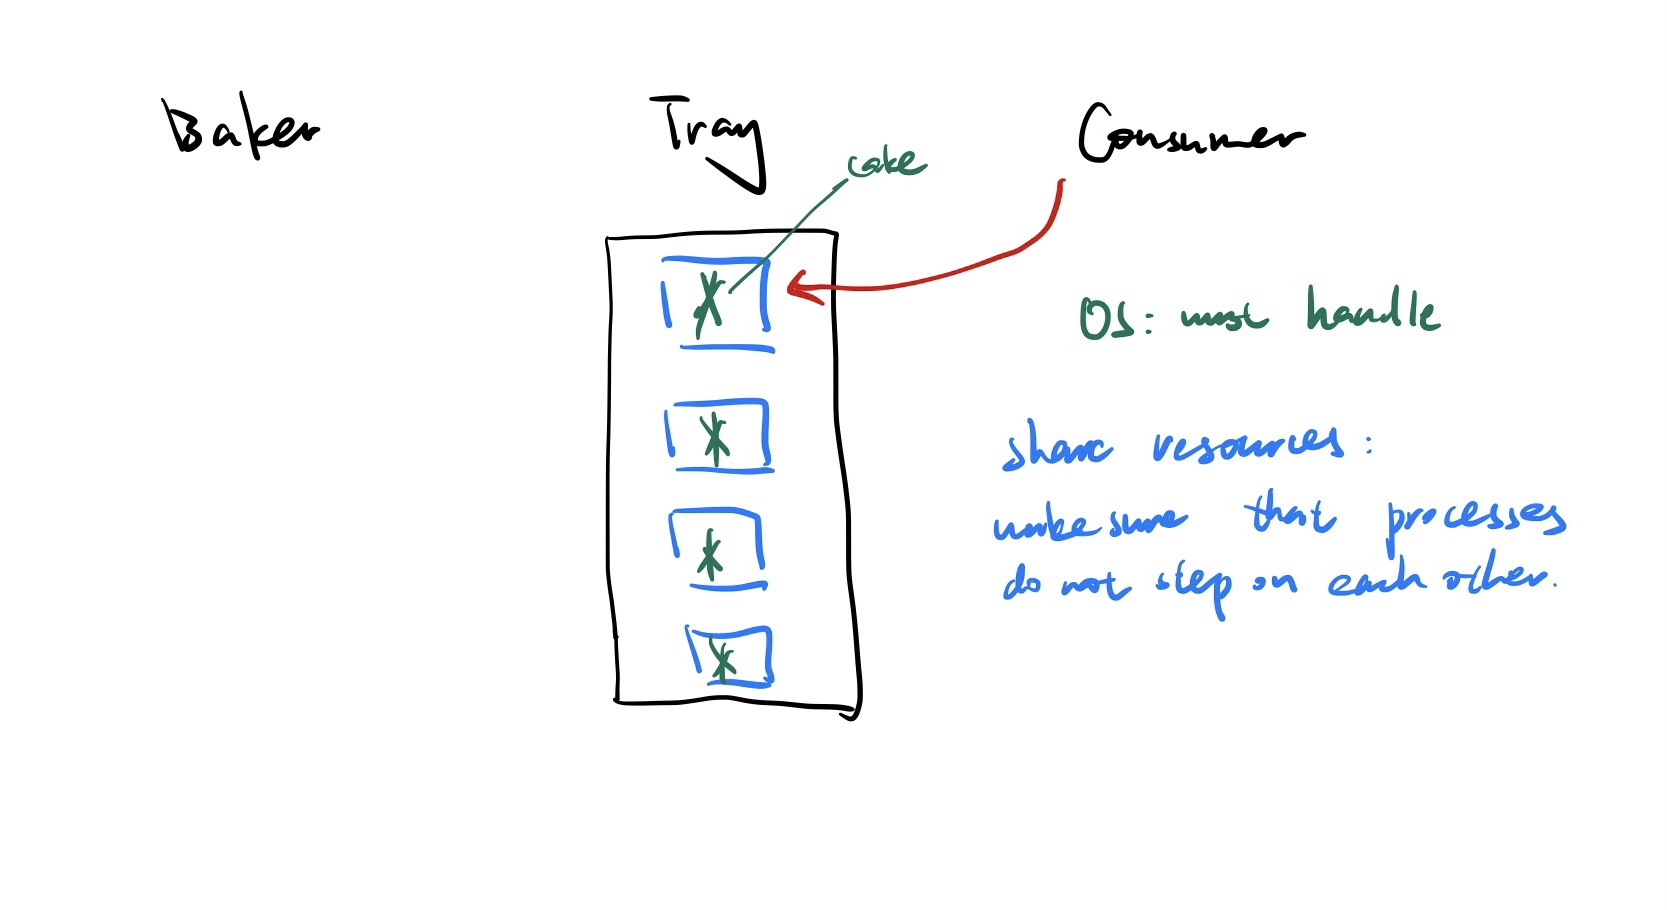 Baker
Tray
Consumer
cake
OS: must handle
share resources:
make sure that processes
do not step on each other.